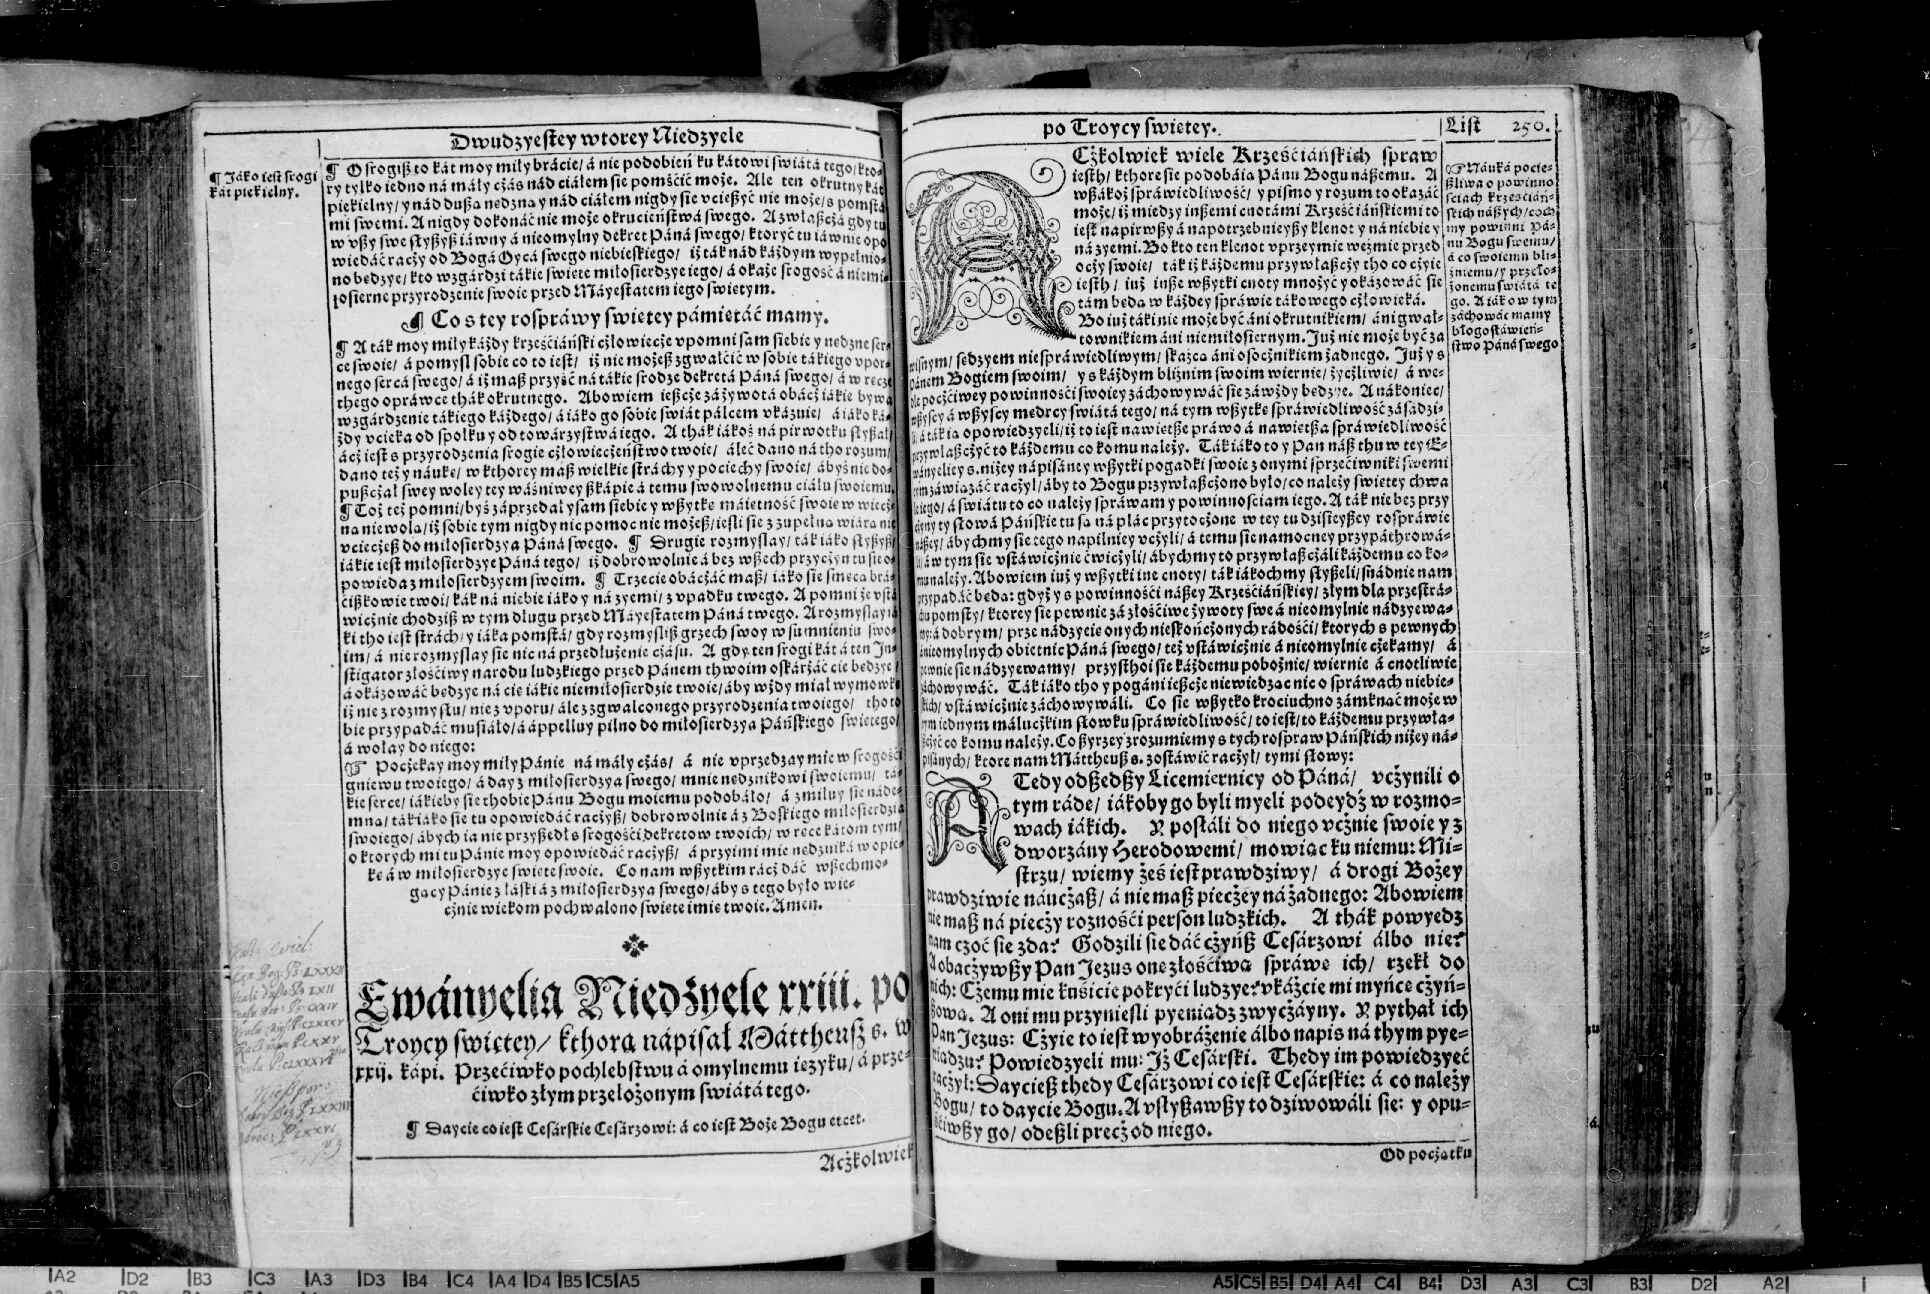 Dwudzyestey wtorey Niedzyele
¶ Jáko iest srogi
kát piekielny.
¶ O srogiß to kát moy miły bráćie/ á nie podobień ku kátowi świátá tego/ kto-
ry tylko iedno ná máły cżás nád ciáłem sie pomśćić może. Ale ten okrutny kát
piekielny/ y nád dußą nędzną y nád ciáłem nigdy sie vcießyć nie może/ s pomstá
mi swemi. A nigdy dokonáć nie może okrucieństwá swego. A zwłaßcżá gdy tu
w vßy swe słyßyß iáwny á nieomylny dekret Páná swego/ ktoryć tu iáwnie opo
wiedáć racży od Bogá Oycá swego niebieskiego/ iż ták nád káżdym wypełnio-
no będzye/ kto wzgárdzi tákie święte miłosierdzye iego/ á okaże srogość á niemi-
łosierne przyrodzenie swoie przed Máyestatem iego świętym.
¶ Co s tey rospráwy świętey pámiętáć mamy.
¶ A ták moy miły káżdy krześćiáński cżłowiecże vpomni sam siebie y nędzne ser-
ce swoie/ á pomysl sobie co to iest/ iż nie możeß zgwałcić w sobie tákiego vpor-
nego sercá swego/ á iż maß przyść ná tákie srodze dekretá Páná swego/ á w ręce
thego opráwce thák okrutnego. Abowiem ießcże zá żywotá obacż iákie bywa
wzgárdzenie tákiego káżdego/ á iáko go sobie świát pálcem vkázuie/ á iáko ká-
żdy vcieka od społku y od towárzystwá iego. A thák iákoś ná pirwotku słyßał/
ácż iest s przyrodzenia srogie cżłowiecżeństwo twoie/ áleć dano ná tho rozum/
dano też y náukę/ w kthorey maß wielkie stráchy y pociechy swoie/ ábyś nie do-
pußcżał swey woley tey wáśniwey ßkápie á temu swowolnemu ciáłu swoiemu.
¶ Toż też pomni/ byś záprzedał y sam siebie y wßytkę máiętność swoię w wiecż-
ną niewolą/ iż sobie tym nigdy nic pomoc nie możeß/ iesli sie z zupełną wiárą nie
vciecżeß do miłosierdzya Páná swego. ¶ Drugie rozmyslay/ ták iáko słyßyß/
iákie iest miłosierdzye Páná tego/ iż dobrowolnie á bez wßech przycżyn tu sie o-
powieda z miłosierdzyem swoim. ¶ Trzecie obacżáć maß/ iáko sie smęcą brá-
cißkowie twoi/ kák ná niebie iáko y ná zyemi/ z vpadku twego. A pomni że vstá
wicżnie chodziß w tym długu przed Máyestatem Páná twego. A rozmyslay iá
ki tho iest strách/ y iáka pomstá/ gdy rozmysliß grzech swoy w sumnieniu swo-
im/ á nie rozmyslay sie nic ná przedłużenie cżásu. A gdy ten srogi kát á ten In-
stigator złośćiwy narodu ludzkiego przed Pánem thwoim oskárżáć cie będzye/
á okázowáć będzye ná cie iákie niemiłosierdzie twoie/ áby wżdy miał wymowkę
iż nie z rozmysłu/ nie z vporu/ ále z zgwałconego przyrodzenia twoiego/ tho to
bie przypadáć musiáło/ á áppelluy pilno do miłosierdzya Páńskiego świętego/
á wołay do niego:
☞ Pocżekay moy miły Pánie ná máły cżás/ á nie vprzedzay mie w srogośći
gniewu twoiego/ á day z miłosierdzya swego/ mnie nędznikowi swoiemu/ tá-
kie serce/ iákieby sie thobie Pánu Bogu moiemu podobáło/ á zmiłuy sie náde-
mną/ ták iáko sie tu opowiedáć racżyß/ dobrowolnie á z Boskiego miłosierdzia
swoiego/ ábych ia nie przyßedł s srogośći dekretow twoich/ w ręce kátom tym/
o ktorych mi tu Pánie moy opowiedáć racżyß/ á przyimi mie nędzniká w opie-
kę á w miłosierdzye święte swoie. Co nam wßytkim racż dáć wßechmo-
gący Pánie z łáski á z miłosierdzya swego/ áby s tego było wie-
cżnie wiekom pochwalono święte imię twoie. Amen.
Ewányelia Niedzyele xxiii. po
Troycy świętey/ kthorą nápisał Mattheusz s. w
xxij. kápi. Przećiwko pochlebstwu á omylnemu ięzyku/ á prze-
ćiwko złym przełożonym świátá tego.
¶ Daycie co iest Cesárskie Cesárzowi: á co iest Boże Bogu etcet.
Acżkolwiek
po Troycy świętey.
List 250.
ACżkolwiek wiele Krześćiáńskich spraw
iesth/ kthore sie podobáią Pánu Bogu náßemu. A
wßákoż spráwiedliwość/ y pismo y rozum to okazáć
może/ iż miedzy inßemi cnotámi Krześćiáńskiemi to
iest napirwßy á napotrzebnieyßy klenot y ná niebie y
ná zyemi. Bo kto ten klenot vprzeymie weźmie przed
ocży swoie/ ták iż káżdemu przywłaßcży tho co cżyie
iesth/ iuż inße wßytki cnoty mnożyć y okázowáć sie
tám będą w káżdey spráwie tákowego cżłowieká.
Bo iuż táki nie może być áni okrutnikiem/ áni gwał-
townikiem áni niemiłosiernym. Już nie może być zá
wisnym/ sędzyem niespráwiedliwym/ skaźcą áni osocżnikiem żadnego. Już y s
Pánem Bogiem swoim/ y s káżdym bliźnim swoim wiernie/ życżliwie/ á we-
dle pocżćiwey powinnośći swoiey záchowywáć sie záwżdy będzye. A nákoniec/
wßyscy á wßyscy mędrcy świátá tego/ ná tym wßytkę spráwiedliwość zásádzi-
li á ták ią opowiedzyeli/ iż to iest nawiętße práwo á nawiętßa spráwiedliwość
przywłaßcżyć to káżdemu co komu należy. Ták iáko to y Pan náß thu w tey E-
wányeliey s. niżey nápisáney wßytki pogadki swoie z onymi sprzećiwniki swemi
tym záwiązáć racżył/ áby to Bogu przywłaßcżono było/ co należy świętey chwa
le iego/ á świátu to co należy spráwam y powinnościam iego. A ták nie bez przy
cżyny ty słowá Páńskie tu są ná plác przytocżone w tey tu dzisieyßey rospráwie
náßey/ ábychmy sie tego napilniey vcżyli/ á temu sie namocney przypáthrowá-
li/ á w tym sie vstáwicżnie ćwicżyli/ ábychmy to przywłaßcżáli káżdemu co ko-
mu należy. Abowiem iuż y wßytki ine cnoty/ ták iákochmy słyßeli/ snádnie nam
przypadáć będą: gdyż y s powinnośći náßey Krześćiáńskiey/ złym dla przestrá-
chu pomsty/ ktorey sie pewnie zá złośćiwe żywoty swe á nieomylnie nádzyewá-
my: á dobrym/ prze nádzyeię onych nieskończonych rádośći/ ktorych s pewnych
á nieomylnych obietnic Páná swego/ też vstáwicżnie á nieomylnie cżekamy/ á
pewnie sie nádzyewamy/ przysthoi sie káżdemu pobożnie/ wiernie á cnotliwie
záchowywáć. Ták iáko tho y pogáni ießcże niewiedząc nic o spráwach niebie-
skich/ vstáwicżnie záchowywáli. Co sie wßytko krociuchno zámknąć może w
tym iednym málucżkim słowku spráwiedliwość/ to iest/ to káżdemu przywła-
ßcżyć co komu należy. Co ßyrzey zrozumiemy s tych rospraw Páńskich niżey ná-
pisánych/ ktore nam Máttheuß s. zostáwić racżył/ tymi słowy:
☞ Náuká pocie-
ßliwa o powinno
ściach krześciáń-
skich náßych/ coch
my powinni Pá-
nu Bogu swemu/
á co swoiemu bli-
źniemu/ y przeło-
żonemu świátá te
go. A iáko w tym
záchowáć mamy
błogosłáwień-
stwo Páná swego
ATedy odßedßy Licemiernicy od Páná/ vcżynili o
tym rádę/ iákoby go byli myeli podeydź w rozmo-
wach iákich. Y posłáli do niego vcżnie swoie y z
dworzány Herodowemi/ mowiąc ku niemu: Mi-
strzu/ wiemy żeś iest prawdziwy/ á drogi Bożey
prawdziwie náucżaß/ á nie maß piecżey ná żadnego: Abowiem
nie maß ná piecży roznośći person ludzkich. A thák powyedz
nam czoć sie zda? Godzili sie dáć cżyńß Cesárzowi álbo nie?
A obacżywßy Pan Jezus onę złośćiwą spráwę ich/ rzekł do
nich: Cżemu mie kuśicie pokryći ludzye? vkáżcie mi myńcę cżyń-
ßową. A oni mu przynieśli pyeniądz zwycżáyny. Y pythał ich
Pan Jezus: Cżyie to iest wyobrażenie álbo napis ná thym pye-
niądzu? Powiedzyeli mu: Iż Cesárski. Thedy im powiedzyeć
racżył: Daycieß thedy Cesárzowi co iest Cesárskie: á co należy
Bogu/ to daycie Bogu. A vsłyßawßy to dziwowáli sie: y opu-
śćiwßy go/ odeßli precż od niego.
Od pocżątku
A2 D2 B3 C3 A3 D3 B4 C4 A4 D4 B5 C5 A5
A5 C5 B5 D4 A4 C4 B4 D3 A3 C3 B3 D2 A2